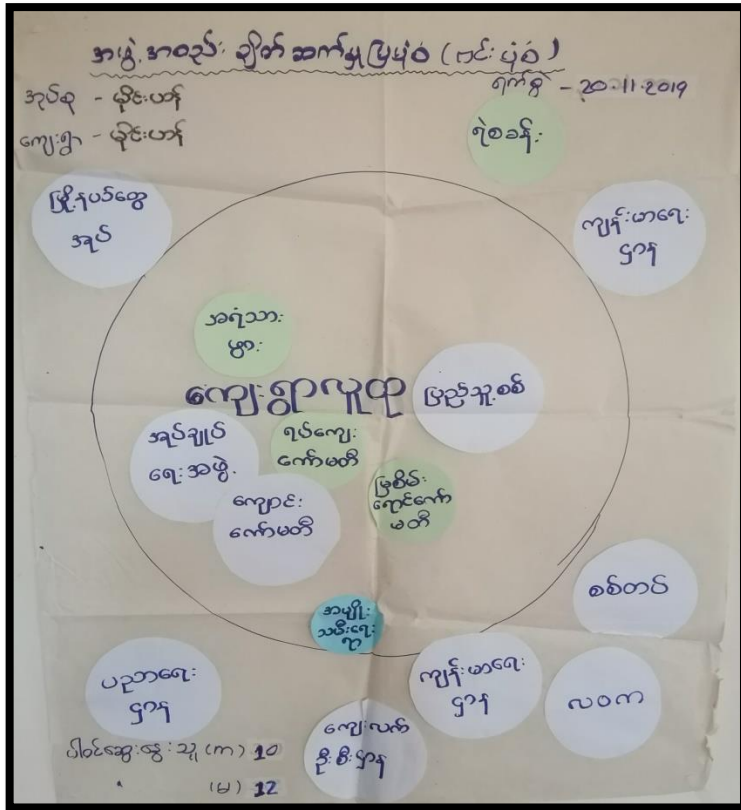 အဖွဲ့အစည်း ချိတ်ဆက်မှုပြပုံစံ (ဗင်းပုံစံ)
ရက်စွဲ - 20.11.2019
အုပ်စု - မိုင်းဟန်
ကျေးရွာ - မိုင်းဟန်
ရဲစခန်း
မြို့နယ်ထွေ
အုပ်
ကျန်းမာရေး
ဌာန
အရံသား
မွား
ကျေးရွာလူထု
ပြည်သူ့စစ်
အုပ်ချုပ်
ရေးအဖွဲ့
ရပ်ကျေး
ကော်မတီ
ကျောင်း
ကော်မတီ
မြစိမ်း
ရောင်ကော်
မတီ
စစ်တပ်
အမျိုး
သမီးရေး
ရာ
ပညာရေး
ဌာန
ကျန်းမာရေး
ဌာန
လဝက
ကျေးလက်
ဦးစီးဌာန
ပါဝင်ဆွေးနွေးသူ (ကျား) 10
(မ) 12